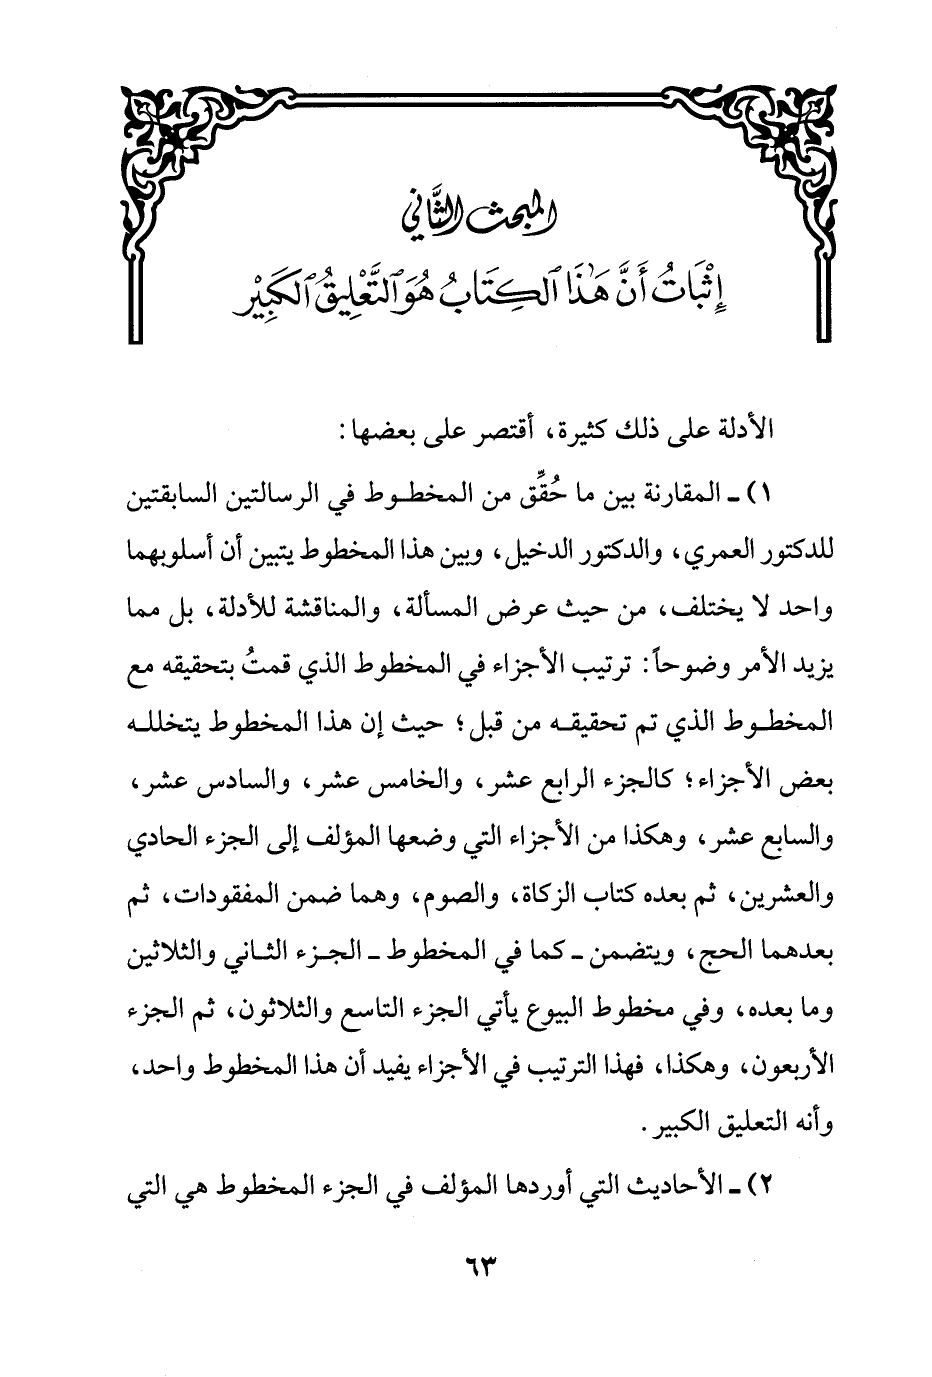 المبحث الثَّاني
إِثْبَاتُ أَنَّ هَٰذَا ٱلكِتَابُ هُوَ ٱلتَّعْلِيقُ ٱلكَبِيْر
الأدلة على ذلك كثيرة، أقتصر على بعضها:
١) ـ المقارنة بين ما حُقِّق من المخطوط في الرسالتين السابقتين
للدكتور العمري، والدكتور الدخيل، وبين هذا المخطوط يتبين أن أسلوبهما
واحد لا يختلف، من حيث عرض المسألة، والمناقشة للأدلة، بل مما
يزيد الأمر وضوحاً: ترتيب الأجزاء في المخطوط الذي قمتُ بتحقيقه مع
المخطوط الذي تم تحقيقه من قبل؛ حيث إن هذا المخطوط يتخلله
بعض الأجزاء؛ كالجزء الرابع عشر، والخامس عشر، والسادس عشر،
والسابع عشر، وهكذا من الأجزاء التي وضعها المؤلف إلى الجزء الحادي
والعشرين، ثم بعده كتاب الزكاة، والصوم، وهما ضمن المفقودات، ثم
بعدهما الحج، ويتضمن ـ كما في المخطوط ـ الجزء الثاني والثلاثين
وما بعده، وفي مخطوط البيوع يأتي الجزء التاسع والثلاثون، ثم الجزء
الأربعون، وهكذا، فهذا الترتيب في الأجزاء يفيد أن هذا المخطوط واحد،
وأنه التعليق الكبير.
٢) ـ الأحاديث التي أوردها المؤلف في الجزء المخطوط هي التي
٦٣